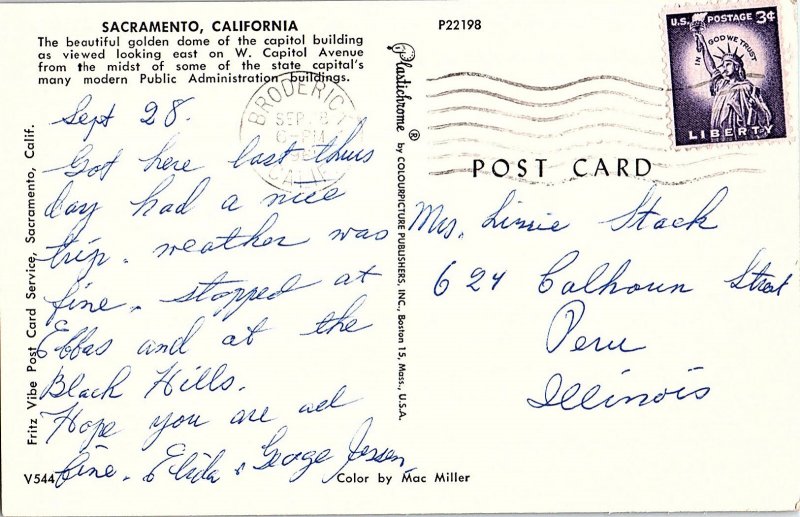 SACRAMENTO, CALIFORNIA
The beautiful golden dome of the capitol building
as viewed looking east on W. Capitol Avenue
from the midst of some of the state capital's
many modern Public Administration buildings.
Sept 28.
Got here last thus
day had a nice
trip. weather was
fine. stopped at
Ebbas and at the
Black Hills.
Hope you are all
fine. & George Jessen
V544
Color by Mac Miller
Fritz Vibe Post Card Service, Sacramento, Calif.
BRODERICK
SEP
PM
CALIF
Plastichrome ® by COLOURPICTURE PUBLISHERS, INC., Boston 15, Mass., U.S.A.
P22198
U.S. POSTAGE 3¢
IN GOD WE TRUST
LIBERTY
POST CARD
Mrs. Linnie Stack
624 Calhoun Street
Peru
Illinois